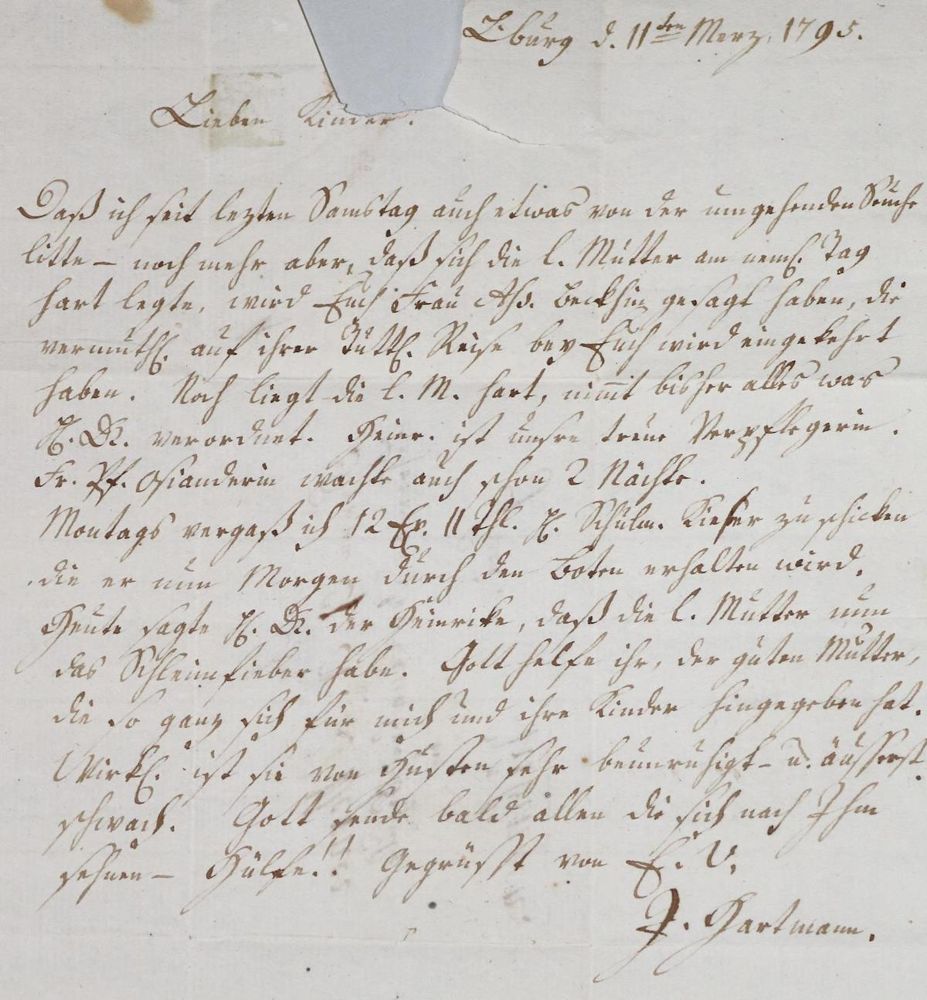 L.burg d. 11ten Merz. 1795.
Lieben Kinder.
Daß ich seit lezten Samstag auch etwas von der umgehenden Seuche
litte – noch mehr aber, daß sich die l. Mutter am neml. Tag
hart legte, wird Euch Frau gesagt haben, die
vermuthl. auf ihrer Tuttl. Reise bey Euch wird eingekehrt
haben. Noch liegt die l. M. hart, nimmt bisher alles was
H. D. verordnet. Heinr. ist unsre treue Verpflegerin.
Fr. Pf. Osianderin wachte auch schon 2 Nächte.
Montags vergaß ich 12 Ex. 11 Thl. H. Schulm. Kiefer zu schicken
die er nun Morgen durch den Boten erhalten wird.
Heute sagte H. D. der Heinrike, daß die l. Mutter nun
das Schleimfieber habe. Gott helfe ihr, der guten Mutter,
die so ganz sich für mich und ihre Kinder hingegeben hat.
Wirkl. ist sie von Husten sehr beunruhigt – u. äusserst
schwach. Gott sende bald allen die sich nach Ihm
sehnen – Hülfe!! Gegrüsst von E. V.
J. Hartmann.